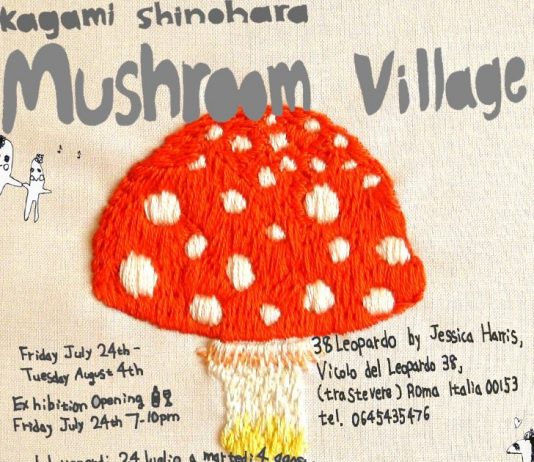 Kagami Shinohara
Mushroom Village
Friday July 24th -
Tuesday August 4th
Exhibition Opening
Friday July 24th 7-10pm
38 Leopardo by Jessica Harris,
Vicolo del Leopardo 38,
(trastevere) Roma Italia 00153
tel. 0645435476
24 luglio a martedi 4